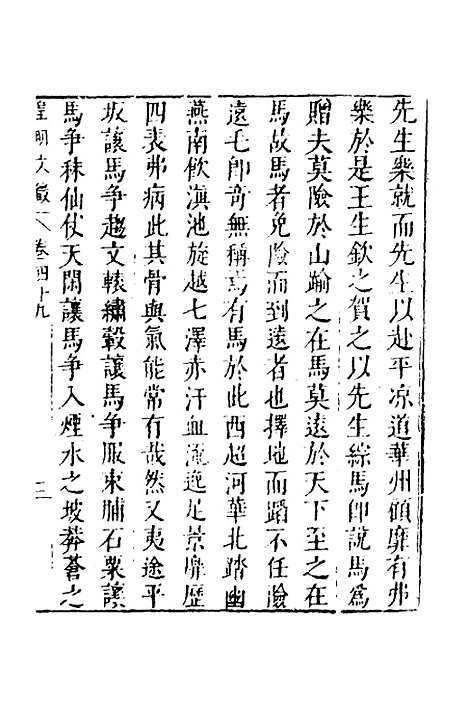 先生樂就而先生以赴平凉道華州顧靡有弗
樂於是王生欽之賀之以先生綜馬卽說馬為
贈夫莫險於山踰之在馬莫遠於天下至之在
馬故馬者免險而到遠者也擇地而蹈不任險
遠毛卽奇無稱焉有馬於此西超河華北踏幽
燕南飲滇池旋越七澤赤汗血流逸足景靡歷
四表弗病此其骨與氣能常有哉然又夷途平
坂讓馬争趨文轅繡轂讓馬争服束脯石粟讓
馬争秣仙仗天閑讓馬争入煙水之坡莽蒼之
皇明文徵 卷四十九